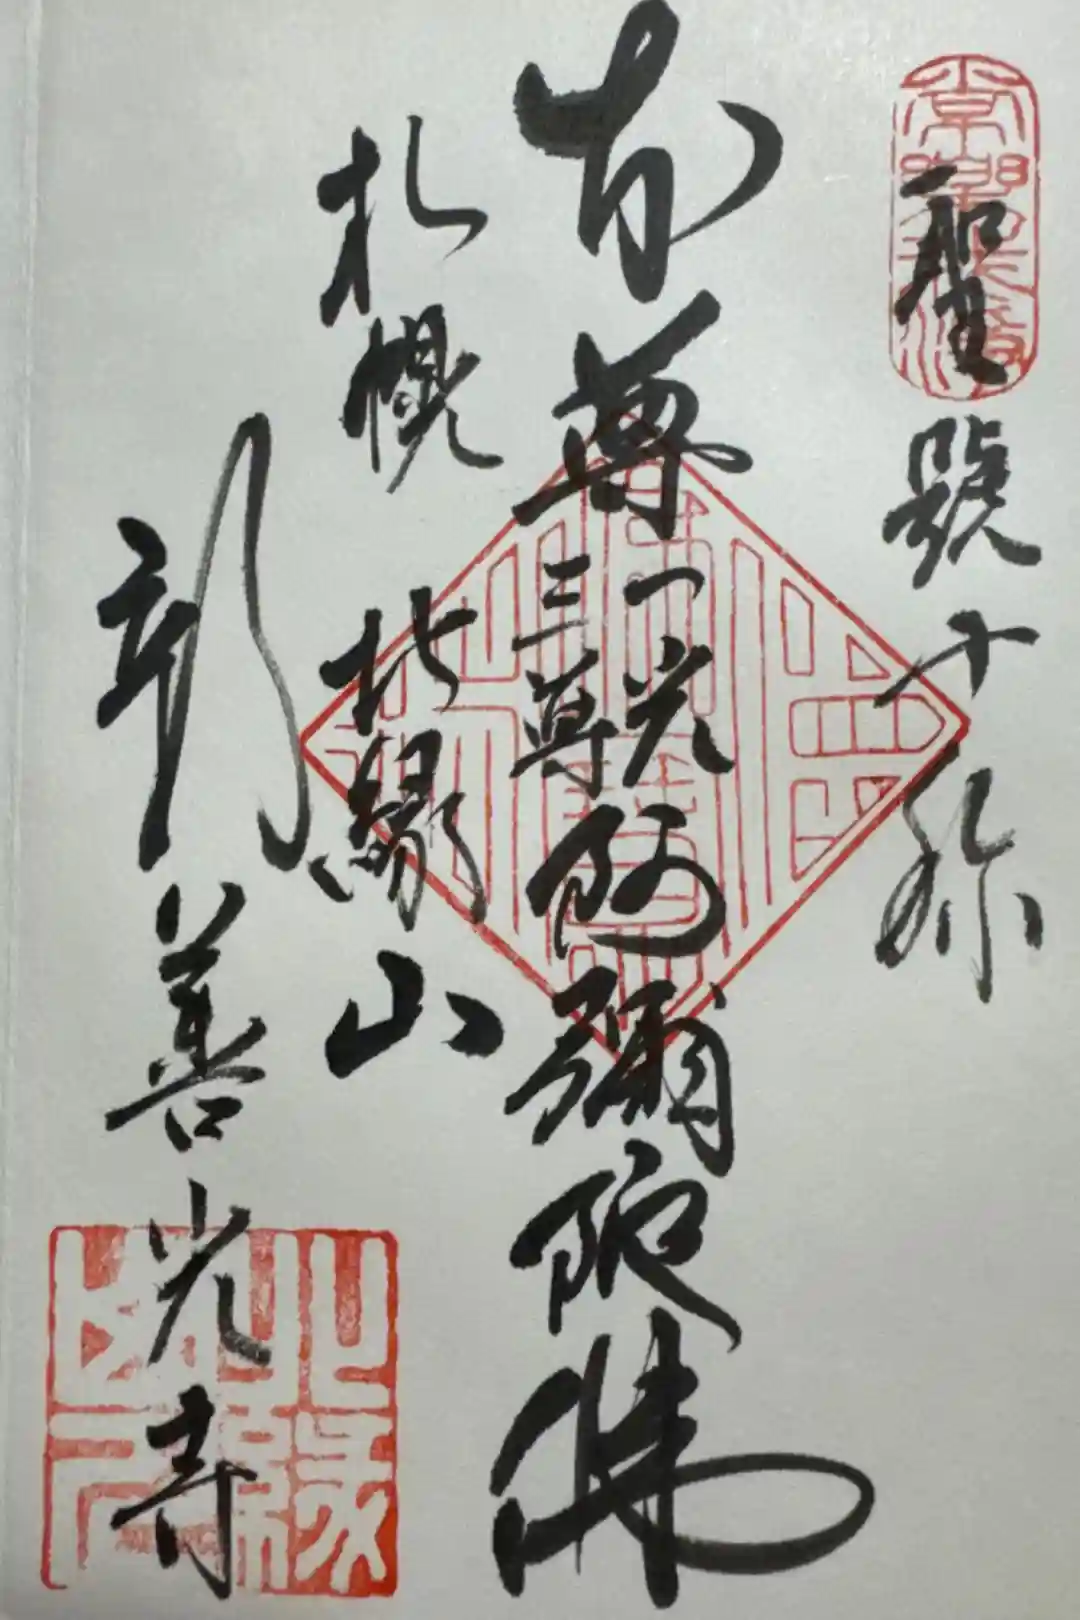 聖號十称
本尊一光三尊阿彌陀佛
札幌北縁山
新善光寺